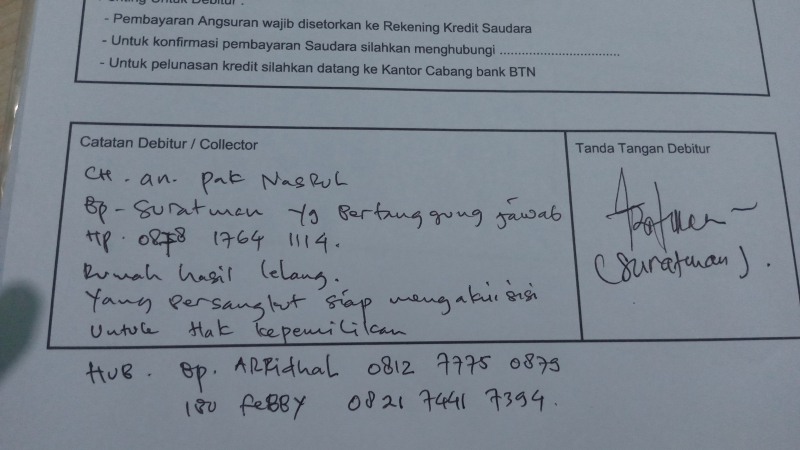 - Pembayaran Angsuran wajib disetorkan ke Rekening Kredit Saudara
- Untuk konfirmasi pembayaran Saudara silahkan menghubungi ..................................
- Untuk pelunasan kredit silahkan datang ke Kantor Cabang bank BTN
Catatan Debitur / Collector
CH . an. Pak Nasrul
Bp - Suratman yg Bertanggung jawab
Hp. 0878 1764 1114.
Rumah hasil lelang.
Yang Bersangkut siap mengakuisisi
Untuk Hak kepemilikan
Tanda Tangan Debitur
(Suratman).
HUB. Bp. ARRidhal 0812 7775 0879
FeBBY 0821 7441 7394.